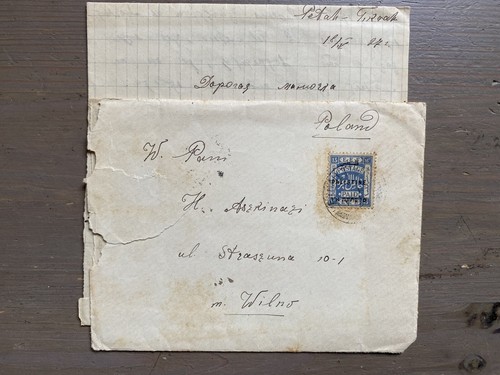 Petah-Tikvah
Дорогая мамочка
Poland
W. Pani
H. Aszkinazi
ul. Straszuna 10-1
m. Wilno
PAID